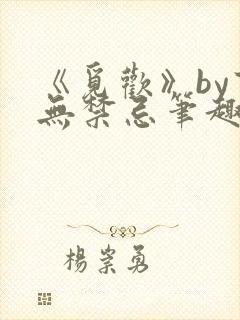 《覓歡》by
無禁忌筆趣
楊崇勇